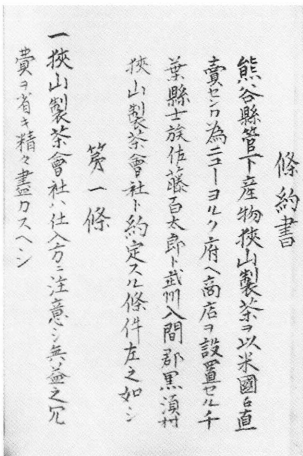 條約書
熊谷縣管下産物狹山製茶ヲ以米國ヘ直
賣センカ為ニューヨルク府ヘ商店ヲ設置セル千
葉縣士族佐藤百太郎ト武州入間郡黒須村
狹山製茶會社ト約定スル條件左之如シ
第一條
一狹山製茶會社ハ仕入方ニ注意シ無益之冗
費ヲ省キ精々盡力スヘシ